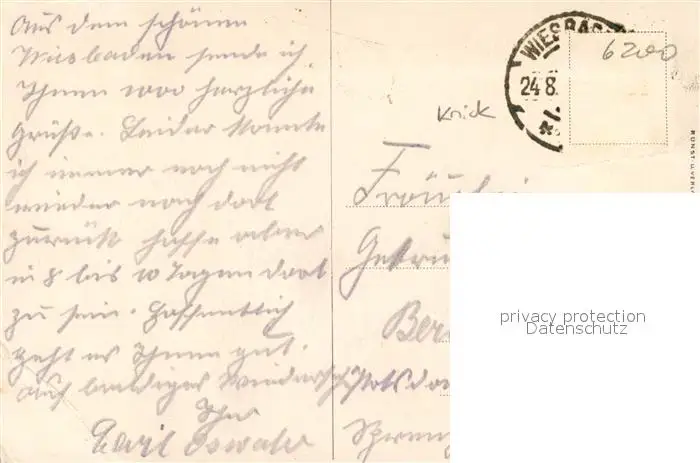 Aus dem schönen
Wiesbaden sende ich
Ihnen 1000 herzliche
Grüße. Leider konnte
ich immer noch nicht
wieder nach dort
zurück hoffe aber
in 8 bis 10 Tagen dort
zu sein. Hoffentlich
geht es Ihnen gut.
Auf baldiges Wiedersehen
Ihr
Carl Oswald
WIESBADEN
24 8.
6200
Knick
Fräulein
Gertru
Ber
Potsdam
privacy protection
Datenschutz